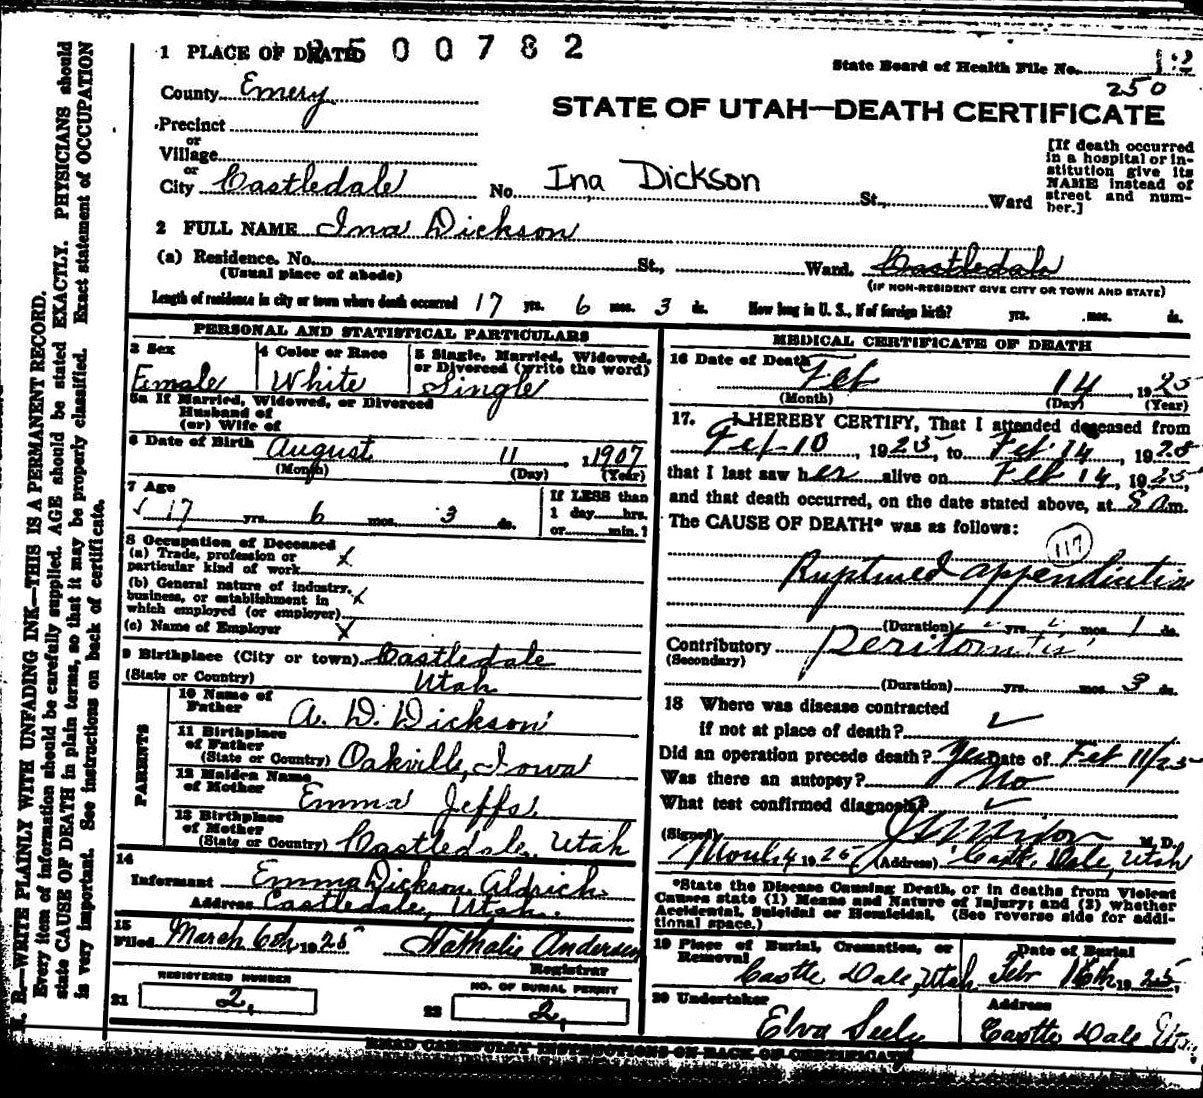 1 PLACE OF DEATH 2500782
State Board of Health File No. 12
250
County Emery
STATE OF UTAH—DEATH CERTIFICATE
Precinct
or
Village
or
City Castledale No. Ina Dickson St., Ward
[If death occurred
in a hospital or in-
stitution give its
NAME instead of
street and num-
ber.]
2 FULL NAME Ina Dickson
(a) Residence. No. St., Ward. Castledale
(Usual place of abode) (IF NON-RESIDENT GIVE CITY OR TOWN AND STATE)
Length of residence in city or town where death occurred 17 yrs. 6 mos. 3 ds. How long in U. S., if of foreign birth? yrs. mos. ds.
PERSONAL AND STATISTICAL PARTICULARS
3 Sex 4 Color or Race 5 Single, Married, Widowed,
or Divorced (write the word)
Female White Single
5a If Married, Widowed, or Divorced
Husband of
(or) Wife of
6 Date of Birth August 11 1907
(Month) (Day) (Year)
7 Age
17 yrs. 6 mos. 3 ds.
If LESS than
1 day hrs.
or min.?
8 Occupation of Deceased
(a) Trade, profession or
particular kind of work x
(b) General nature of industry,
business, or establishment in
which employed (or employer) x
(c) Name of Employer x
9 Birthplace (City or town) Castledale
(State or Country) Utah
PARENTS
10 Name of
Father A. D. Dickson
11 Birthplace
of Father
(State or Country) Oakville, Iowa
12 Maiden Name
of Mother Emma Jeffs.
13 Birthplace
of Mother
(State or Country) Castledale, Utah
14
Informant Emma Dickson Aldrich.
Address Castledale, Utah.
15
Filed March 6th, 1925 Nathalie Andersen
Registrar
REGISTERED NUMBER NO. OF BURIAL PERMIT
21 2, 22 2,
MEDICAL CERTIFICATE OF DEATH
16 Date of Death
Feb 14 1925
(Month) (Day) (Year)
17. I HEREBY CERTIFY, That I attended deceased from
Feb-10, 1925, to Feb 14, 1925
that I last saw her alive on Feb 14, 1925
and that death occurred, on the date stated above, at 8 a.m.
The CAUSE OF DEATH* was as follows:
117
Ruptured appendicitis
(Duration) yrs. mos. 1 ds.
Contributory peritonitis
(Secondary)
(Duration) yrs. mos. 3 ds.
18 Where was disease contracted
if not at place of death?
Did an operation precede death? Yes Date of Feb 11/25
Was there an autopsy? No
What test confirmed diagnosis?
(Signed) M. D.
1925 (Address) Castle Dale, Utah
*State the Disease Causing Death, or in deaths from Violent
Causes state (1) Means and Nature of Injury; and (2) whether
Accidental, Suicidal or Homicidal. (See reverse side for addi-
tional space.)
19 Place of Burial, Cremation, or
Removal Date of Burial
Castle Dale, Utah Febr 16th, 1925,
20 Undertaker Address
Elva Seely Castle Dale Ut.
READ CAREFULLY INSTRUCTIONS ON BACK OF CERTIFICATE
N. B.—WRITE PLAINLY WITH UNFADING INK—THIS IS A PERMANENT RECORD.
Every item of information should be carefully supplied. AGE should be stated EXACTLY. PHYSICIANS should
state CAUSE OF DEATH in plain terms, so that it may be properly classified. Exact statement of OCCUPATION
is very important. See instructions on back of certificate.